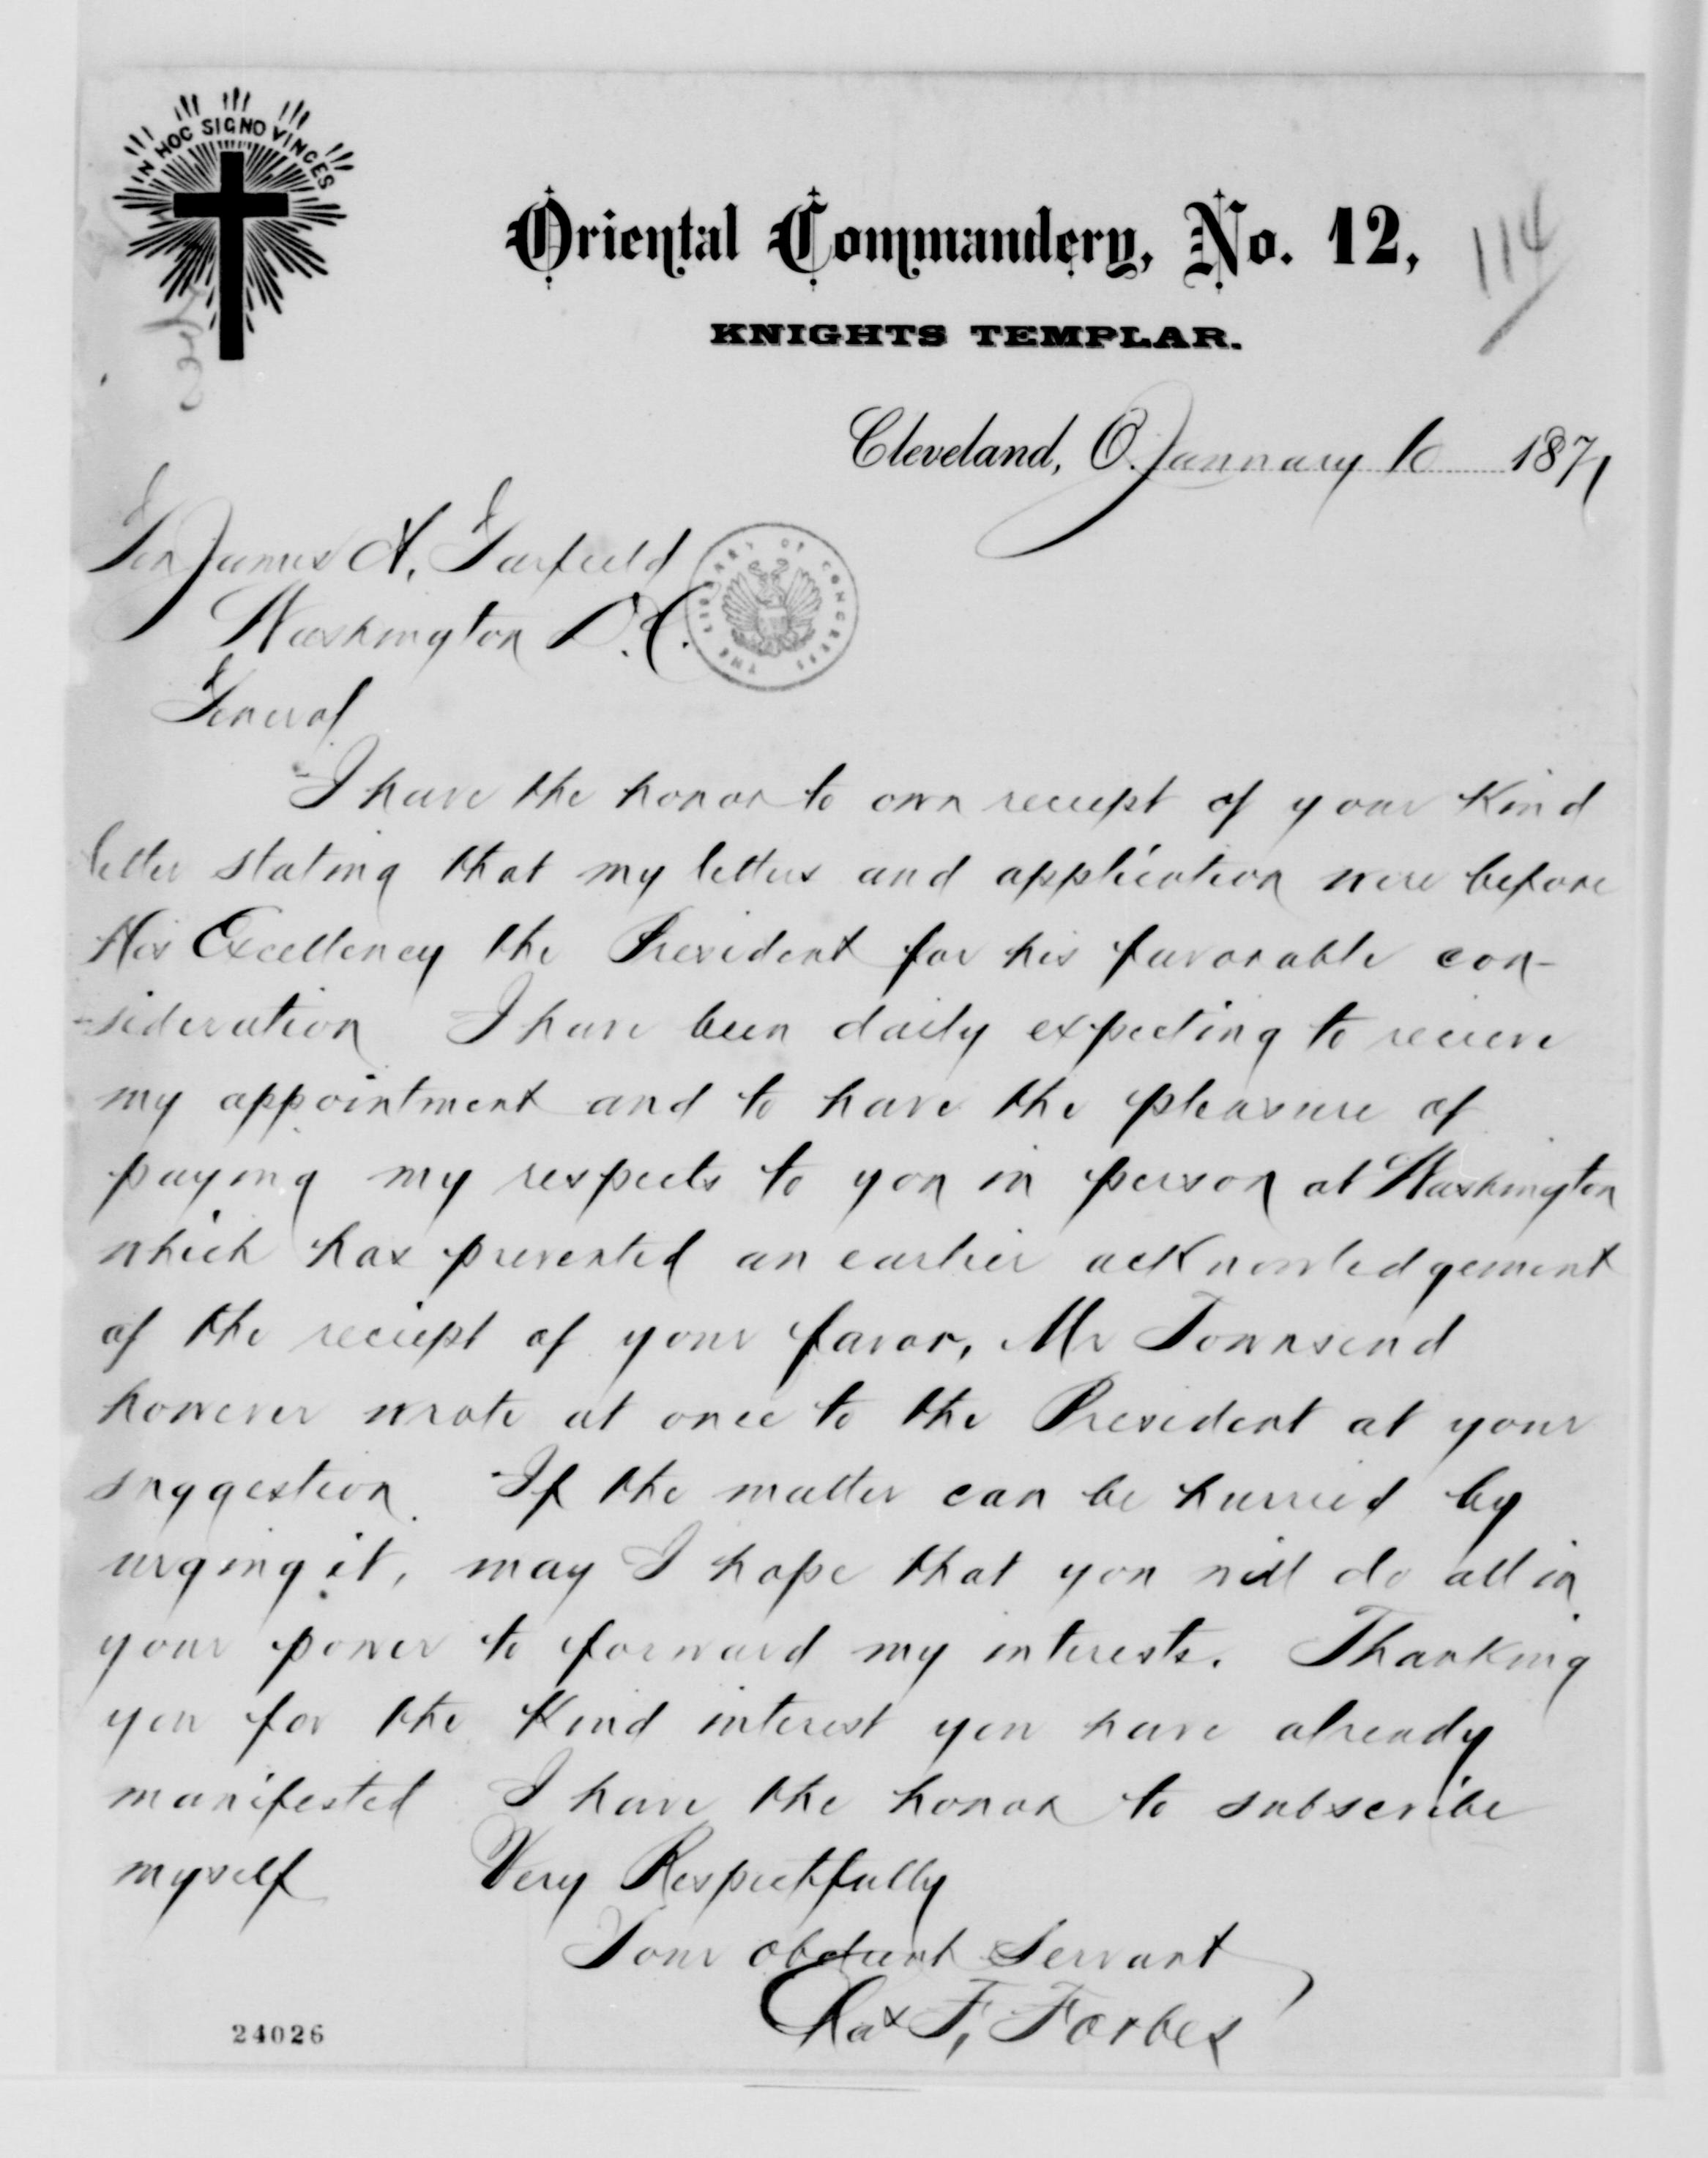 IN HOC SIGNO VINCES
Oriental Commandery, No. 12,
114
KNIGHTS TEMPLAR.
Cleveland, O. January 16 1871
Gen James A. Garfield
Washington D.C.
THE LIBRARY OF CONGRESS
General
I have the honor to own reciept of your Kind
letter stating that my letters and application were before
His Excellency the President for his favorable con-
-sideration I have been daily expecting to recieve
my appointment and to have the pleasure of
paying my respects to you in person at Washington
which has prevented an earlier acknowledgement
of the reciept of your favor, Mr Townsend
however wrote at once to the President at your
suggestion. If the matter can be hurried by
urging it, may I hope that you will do all in
your power to forward my interests. Thanking
you for the Kind interest you have already
manifested I have the honor to subscribe
myself Very Respectfully
Your obedient Servant
Chas F, Forbes
24026